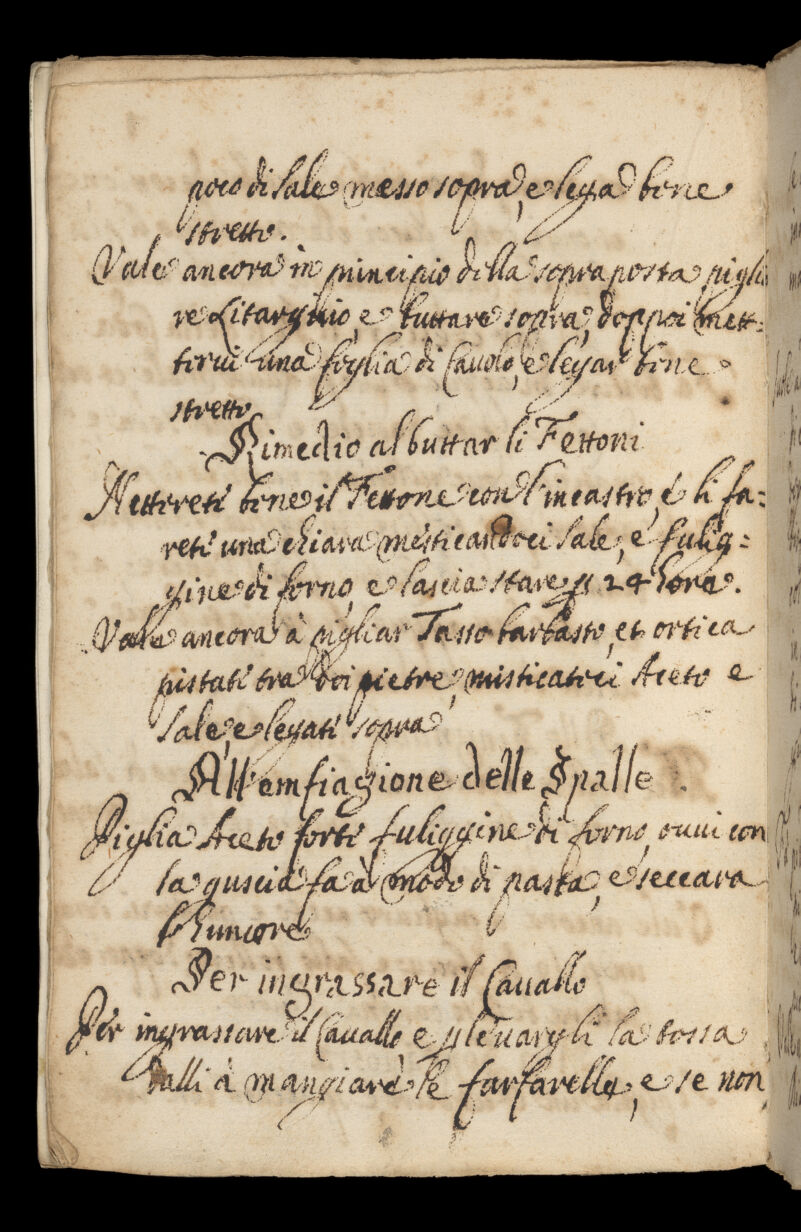 poco di sale messo sopra, e lega bene
stretto.
Vale ancora in principio della sopraposta piglia
re Litargirio, e buttare sopra, doppoi mett=
tervi una foglia di Cavolo, e legar bene
stretto
Rimedio al buttar li Fettoni
Nettereti bene il Fettone con l'incastro, é li fa=
reti una chiara misticandoci sale, e fulig=
gine di forno, e lascia stare p 24 hore.
Vale ancora à pigliar Tasso barbasto, et ortica
pistati tra doi pietre, misticatoci Aceto e
sale, e legati sopra
All'emfiagione delle Spalle
Piglia Aceto forti fuliggine di forno, ovvi con
la guscia fa à modo di pasta, e seccara
l'humore
Per ingrassare il Cavallo
Per ingrassare il Cavallo e p levargli la tossa
dalli à mangiare le farfarelle, e se non